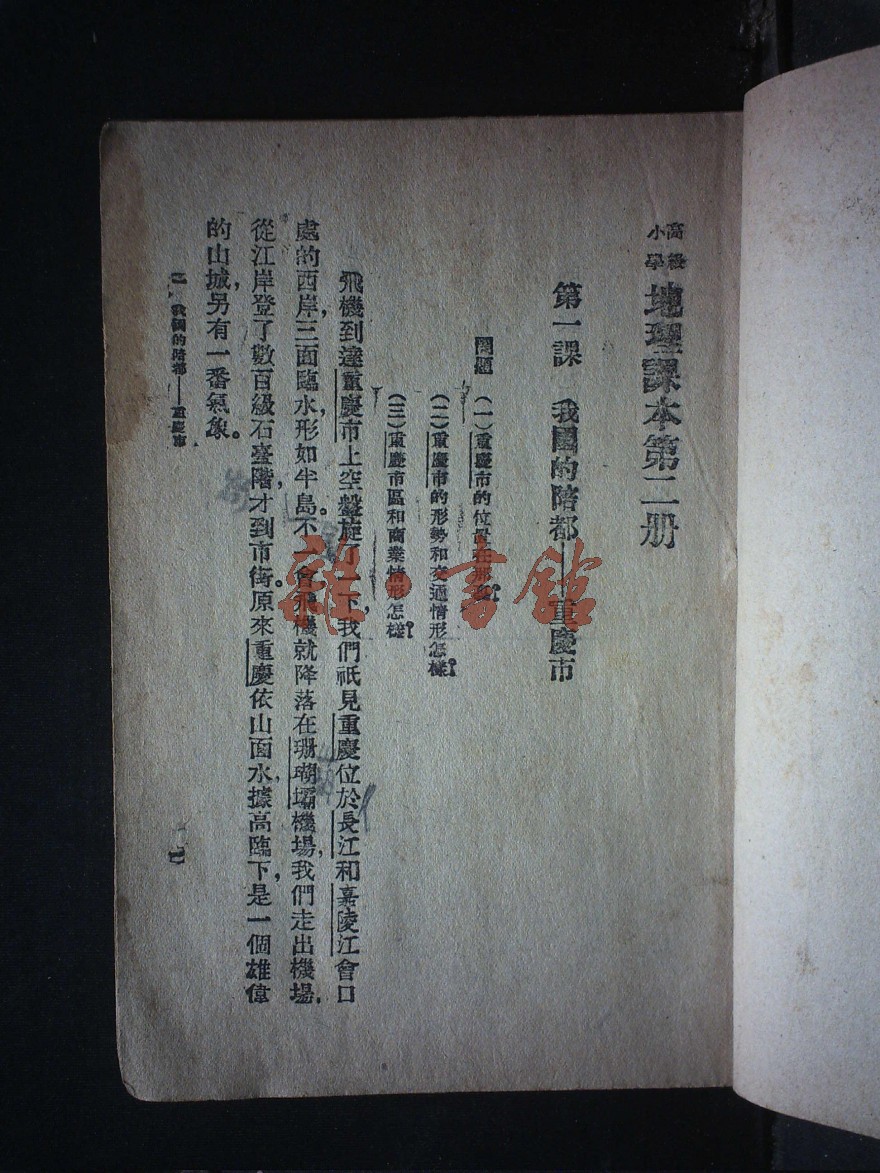 高級
小學
地理課本第二册
第一課　我國的陪都——重慶市
問題　(一)重慶市的位置在那裏？
(二)重慶市的形勢和交通情形怎樣？
(三)重慶市區和商業情形怎樣？
飛機到達重慶市上空，盤旋了一下，我們祇見重慶位於長江和嘉陵江會口
處的西岸，三面臨水，形如半島。不一會，飛機就降落在珊瑚壩機場，我們走出機場，
從江岸登了數百級石臺階，才到市街。原來重慶依山面水，據高臨下，是一個雄偉
的山城，另有一番氣象。
一　我國的陪都——重慶市
一
雜·書館